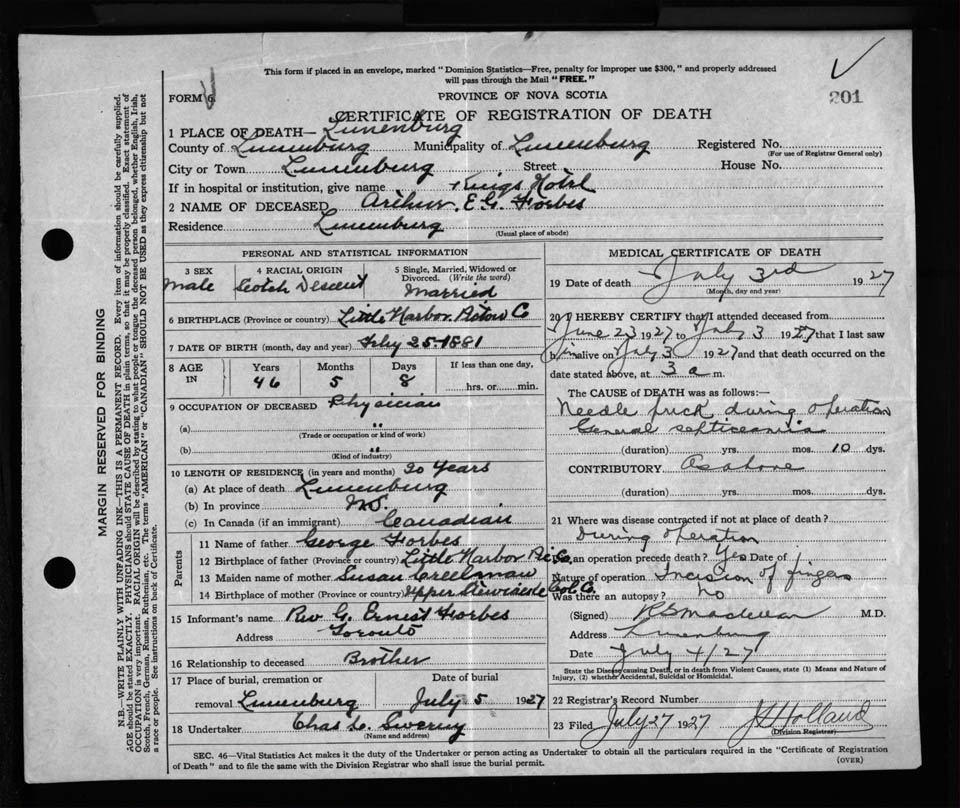 This form if placed in an envelope, marked "Dominion Statistics—Free, penalty for improper use $300," and properly addressed
will pass through the Mail "FREE."
FORM 6
PROVINCE OF NOVA SCOTIA
201
CERTIFICATE OF REGISTRATION OF DEATH
1 PLACE OF DEATH— Lunenburg
County of Lunenburg Municipality of Lunenburg Registered No.
(For use of Registrar General only)
City or Town Lunenburg Street House No.
If in hospital or institution, give name Kings Hotel
2 NAME OF DECEASED Arthur E. G. Forbes
Residence Lunenburg
(Usual place of abode)
PERSONAL AND STATISTICAL INFORMATION
3 SEX 4 RACIAL ORIGIN 5 Single, Married, Widowed or
Divorced. (Write the word)
Male Scotch Descent Married
6 BIRTHPLACE (Province or country) Little Harbor Pictou Co
7 DATE OF BIRTH (month, day and year) Feby 25-1881
8 AGE IN Years Months Days If less than one day,
46 5 8 hrs. or min.
9 OCCUPATION OF DECEASED Physician
(a) "
(Trade or occupation or kind of work)
(b) "
(Kind of industry)
10 LENGTH OF RESIDENCE (in years and months) 20 Years
(a) At place of death Lunenburg
(b) In province N.S.
(c) In Canada (if an immigrant) Canadian
Parents
11 Name of father George Forbes
12 Birthplace of father (Province or country) Little Harbor Pi. Co.
13 Maiden name of mother Susan Creelman
14 Birthplace of mother (Province or country) Upper Stewiacke Col. Co.
15 Informant's name Rev G. Ernest Forbes
Address Toronto
16 Relationship to deceased Brother
17 Place of burial, cremation or Date of burial
removal Lunenburg July 5 1927
18 Undertaker Chas L. Sweeny
(Name and address)
MEDICAL CERTIFICATE OF DEATH
19 Date of death July 3rd 1927
(Month, day and year)
20 I HEREBY CERTIFY that I attended deceased from
June 23 1927 to July 3 1927 that I last saw
him alive on July 3 1927 and that death occurred on
date stated above, at 3 a m.
The CAUSE of DEATH was as follows:—
Needle prick during operation
General septiceamia
(duration) yrs. mos. 10 dys.
CONTRIBUTORY As above
(duration) yrs. mos. dys.
21 Where was disease contracted if not at place of death?
During operation
an operation precede death? Yes Date of
Nature of operation Incision of finger
Was there an autopsy? No
(Signed) M.D.
Address Lunenburg
Date July 4/27
State the Disease causing Death, or in death from Violent Causes, state (1) Means and Nature of
Injury, (2) whether Accidental, Suicidal or Homicidal.
22 Registrar's Record Number
23 Filed July 27 1927 Holland
(Division Registrar)
SEC. 46—Vital Statistics Act makes it the duty of the Undertaker or person acting as Undertaker to obtain all the particulars required in the "Certificate of Registration
of Death" and to file the same with the Division Registrar who shall issue the burial permit.
(OVER)
MARGIN RESERVED FOR BINDING
N.B.—WRITE PLAINLY WITH UNFADING INK—THIS IS A PERMANENT RECORD. Every item of information should be carefully supplied.
AGE should be stated EXACTLY. PHYSICIANS should STATE CAUSE OF DEATH in plain terms, so that it may be properly classified. Exact statement of
OCCUPATION is very important. RACIAL ORIGIN will be described by stating to what people or tongue the deceased person belonged, whether English, Irish,
Scotch, French, German, Russian, Ruthenian, etc. The terms "AMERICAN" or "CANADIAN" SHOULD NOT BE USED as they express citizenship but not
a race or people. See instructions on back of Certificate.